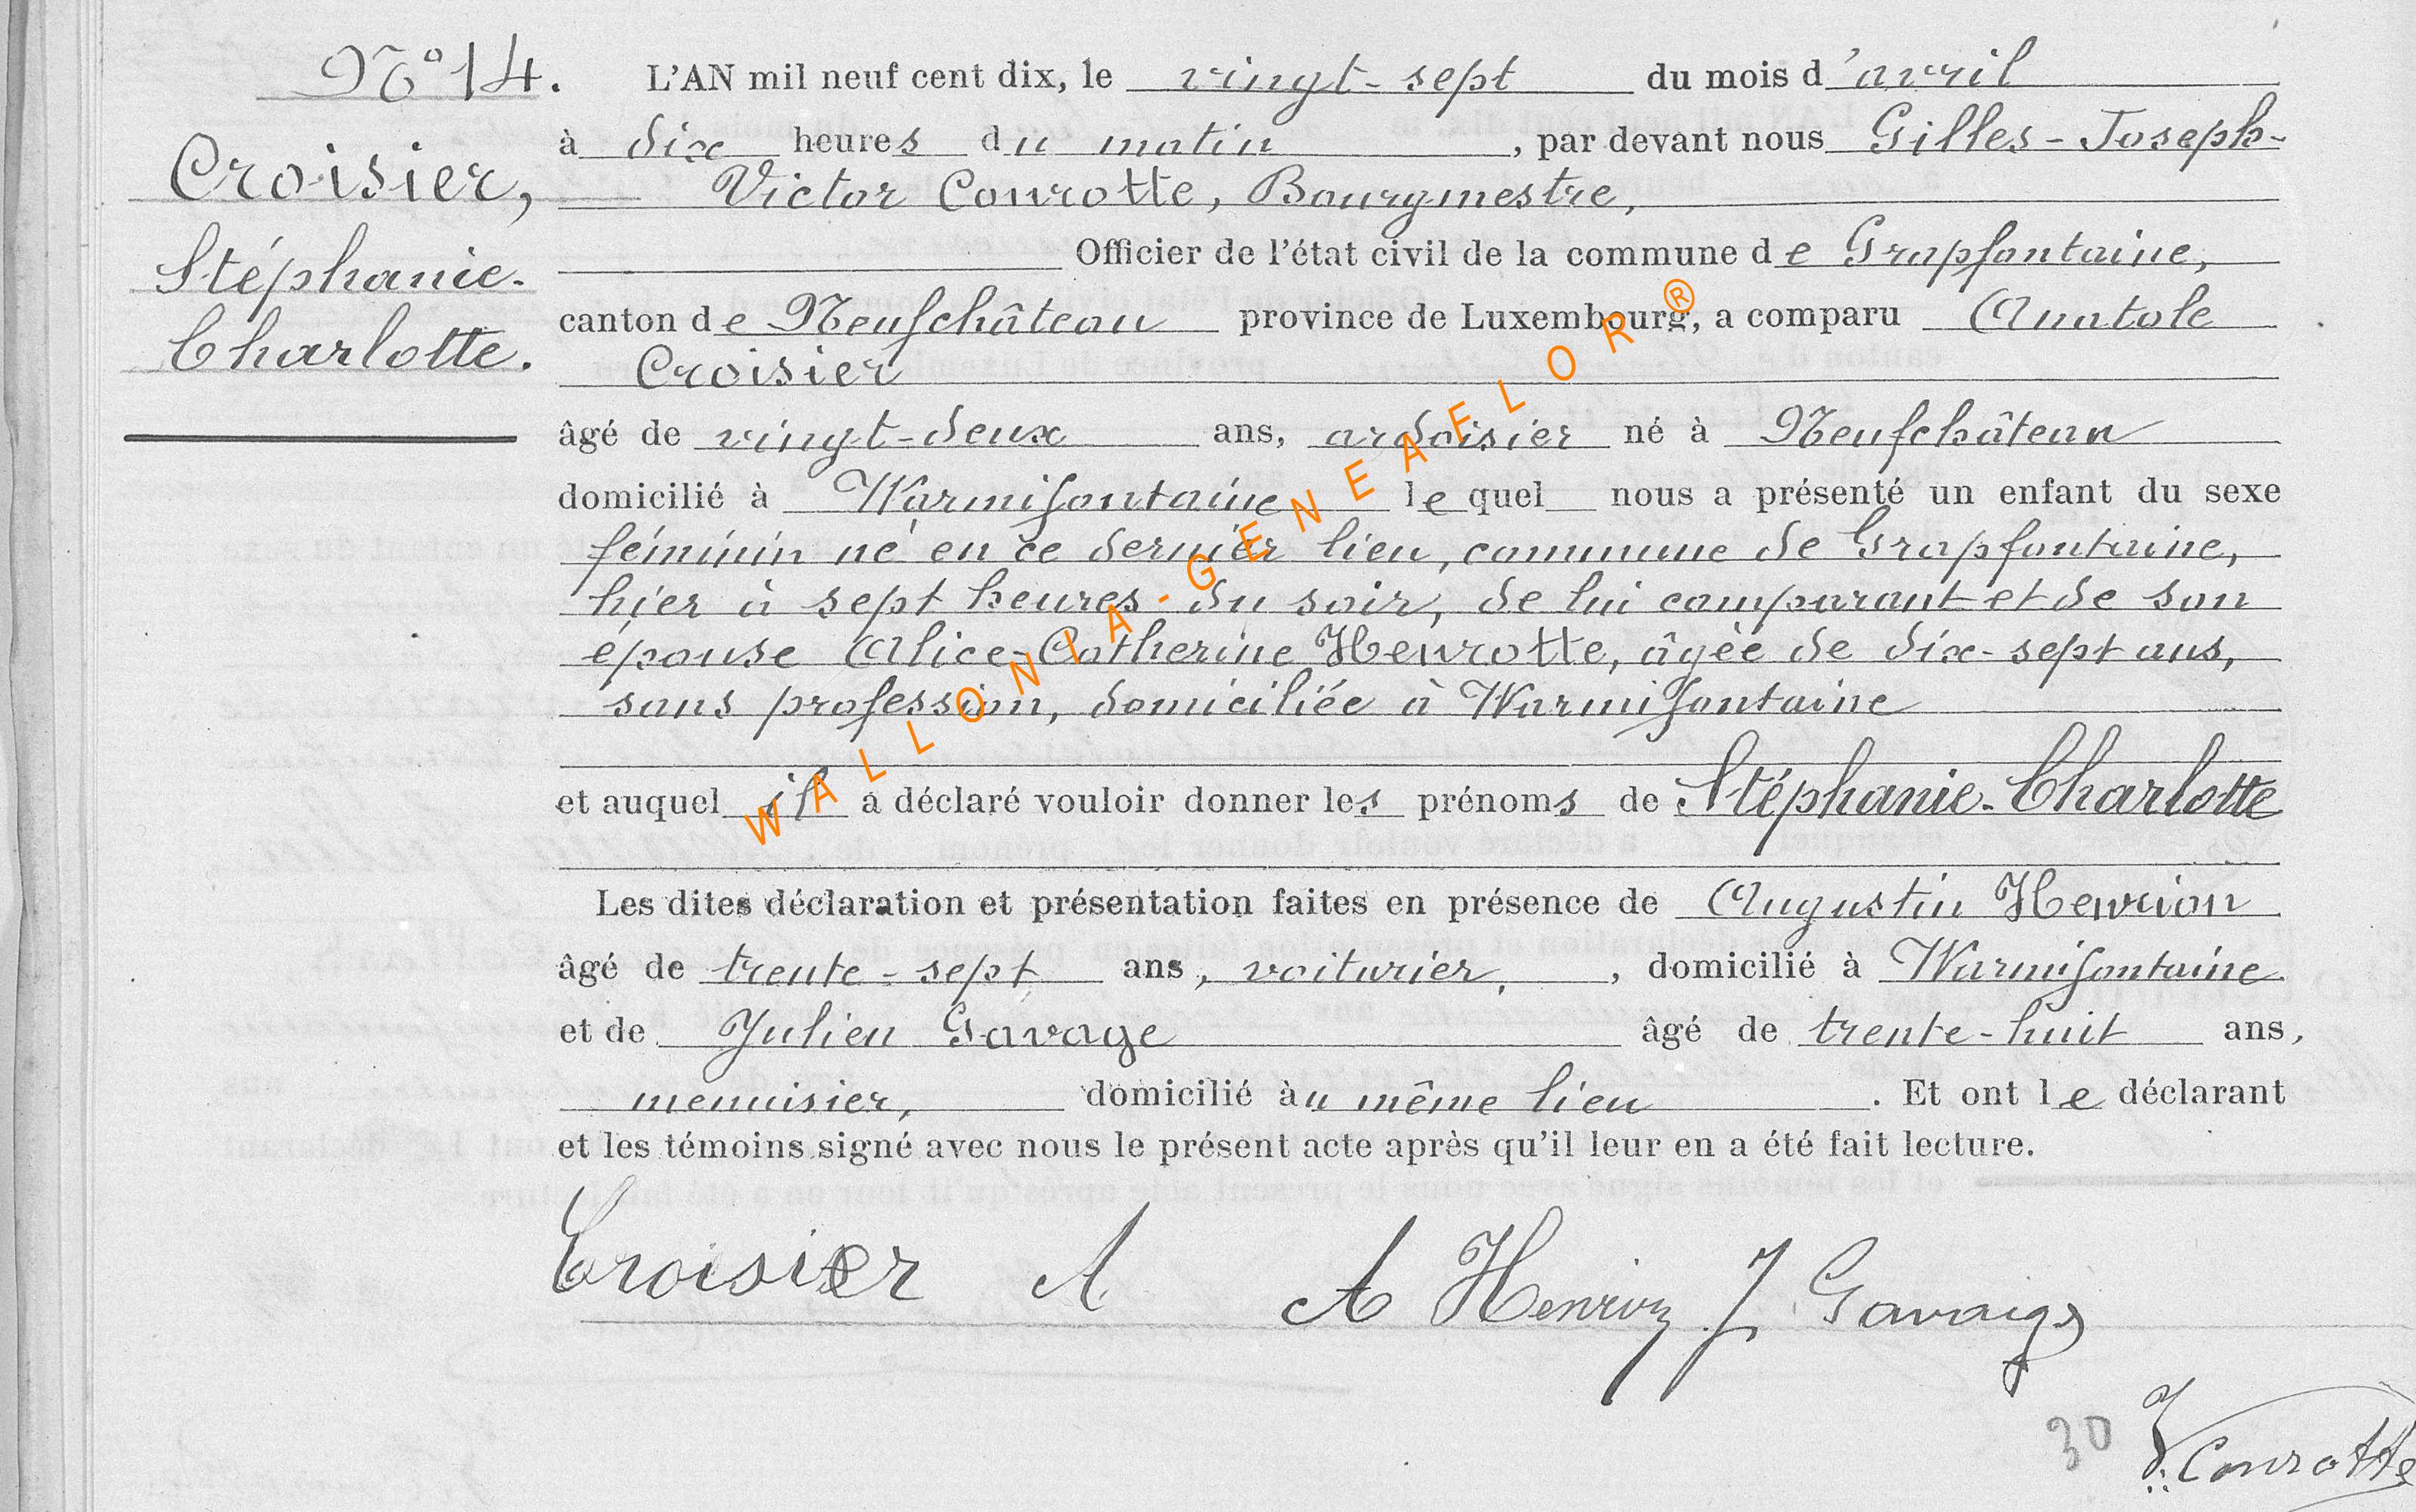 N° 14.
Croisier,
Stéphanie-
Charlotte.
L'AN mil neuf cent dix, le vingt-sept du mois d'avril
à dix heures du matin, par devant nous Gilles-Joseph-
Victor Conrotte, Bourgmestre,
Officier de l'état civil de la commune de Grapfontaine,
canton de Neufchâteau province de Luxembourg, a comparu Anatole
Croisier
âgé de vingt-deux ans, ardoisier né à Neufchâteau
domicilié à Warmifontaine lequel nous a présenté un enfant du sexe
féminin né en ce dernier lieu, commune de Grapfontaine,
hier à sept heures du soir, de lui comparant et de son
épouse Alice-Catherine Henrotte, âgée de dix-sept ans,
sans profession, domiciliée à Warmifontaine
et auquel il a déclaré vouloir donner les prénoms de Stéphanie-Charlotte
Les dites déclaration et présentation faites en présence de Augustin Henrion
âgé de trente-sept ans, voiturier, , domicilié à Warmifontaine
et de Julien Gavage âgé de trente-huit ans,
menuisier, domicilié au même lieu. Et ont le déclarant
et les témoins signé avec nous le présent acte après qu'il leur en a été fait lecture.
Croisier A A Henrion J Gavage
30 V. Conrotte
WALLONIA-GENEAFLOR®